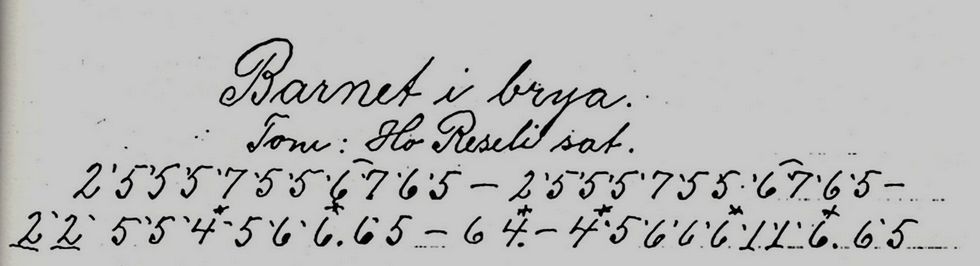 Barnet i brya.
Tone: Ho Reseli sat.
2'5'5'5'7'5'5'6͡'7'6'5 – 2'5'5'5'7'5'5'6͡'7'6'5 –
2' 2' 5'5'4*'5'6'6*.'6'5 – 6 4*. – 4*'5'6'6'6*'1'1'6*. 6'5